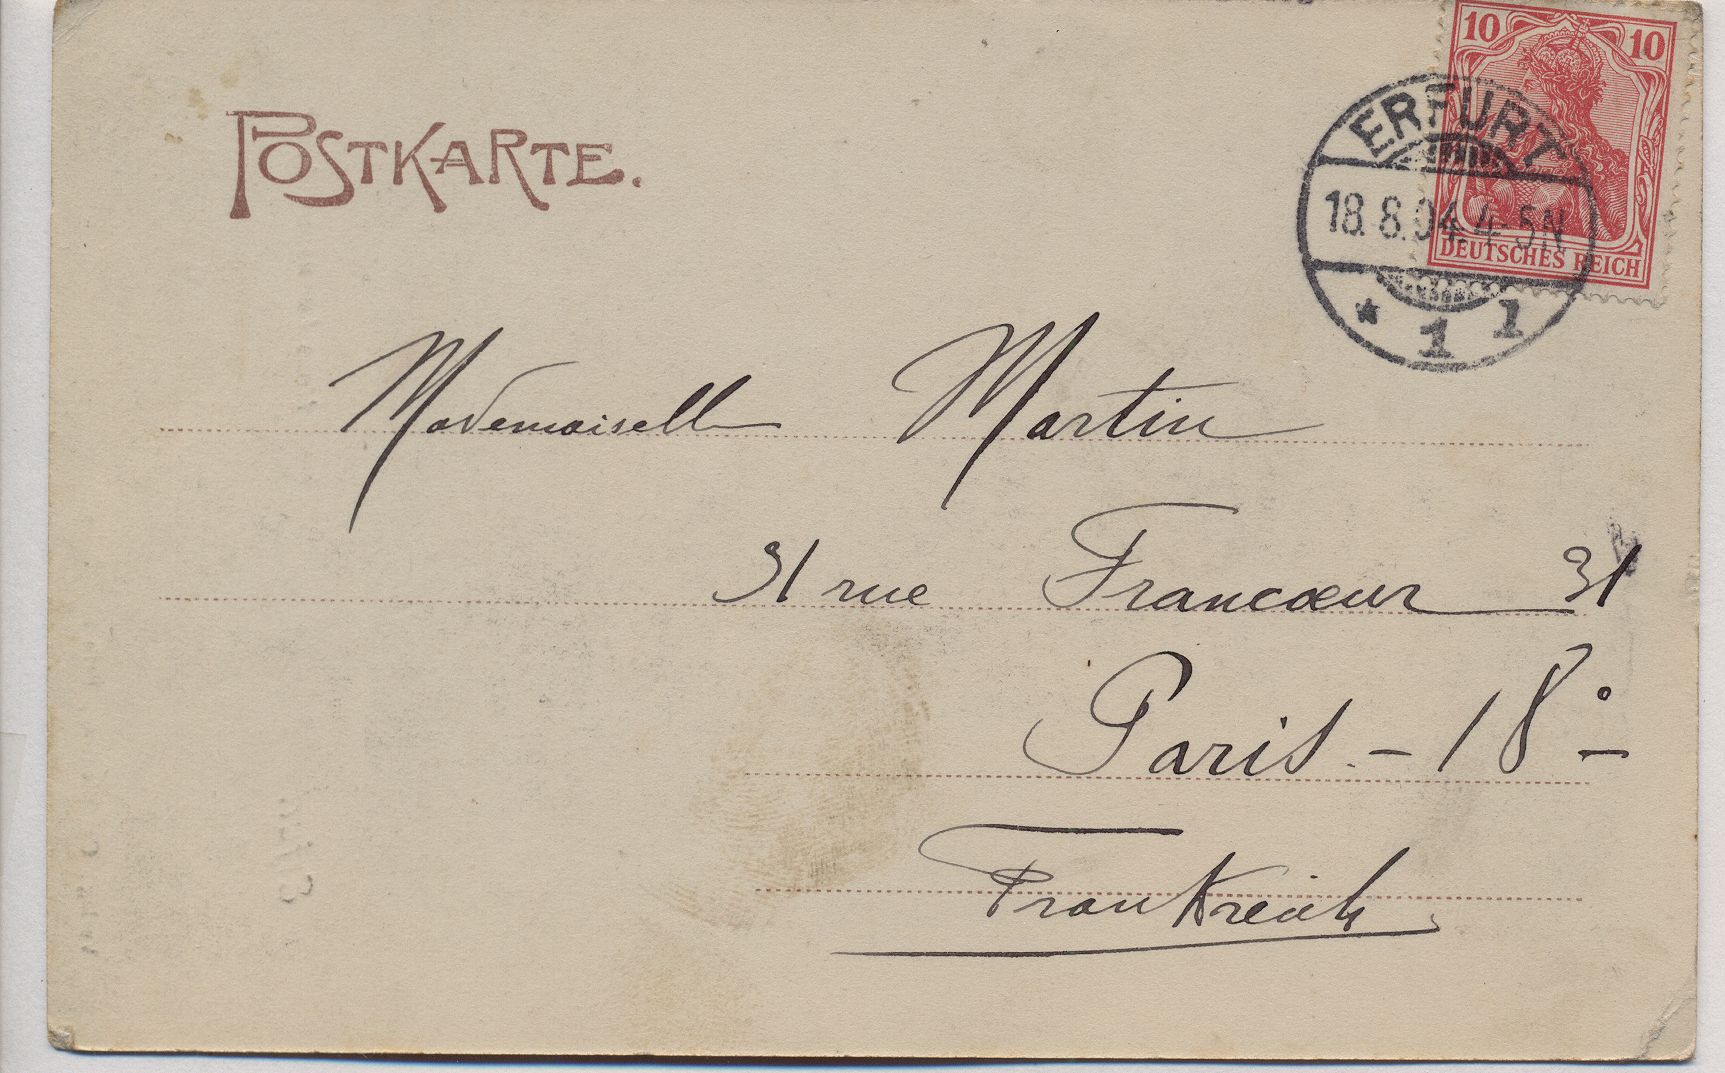 POSTKARTE.
10 10
DEUTSCHES REICH
ERFURT
18.8.04.4-5N
* 1 1
Mademoiselle Martin
31 rue Francœur 31
Paris - 18°
Frankreich